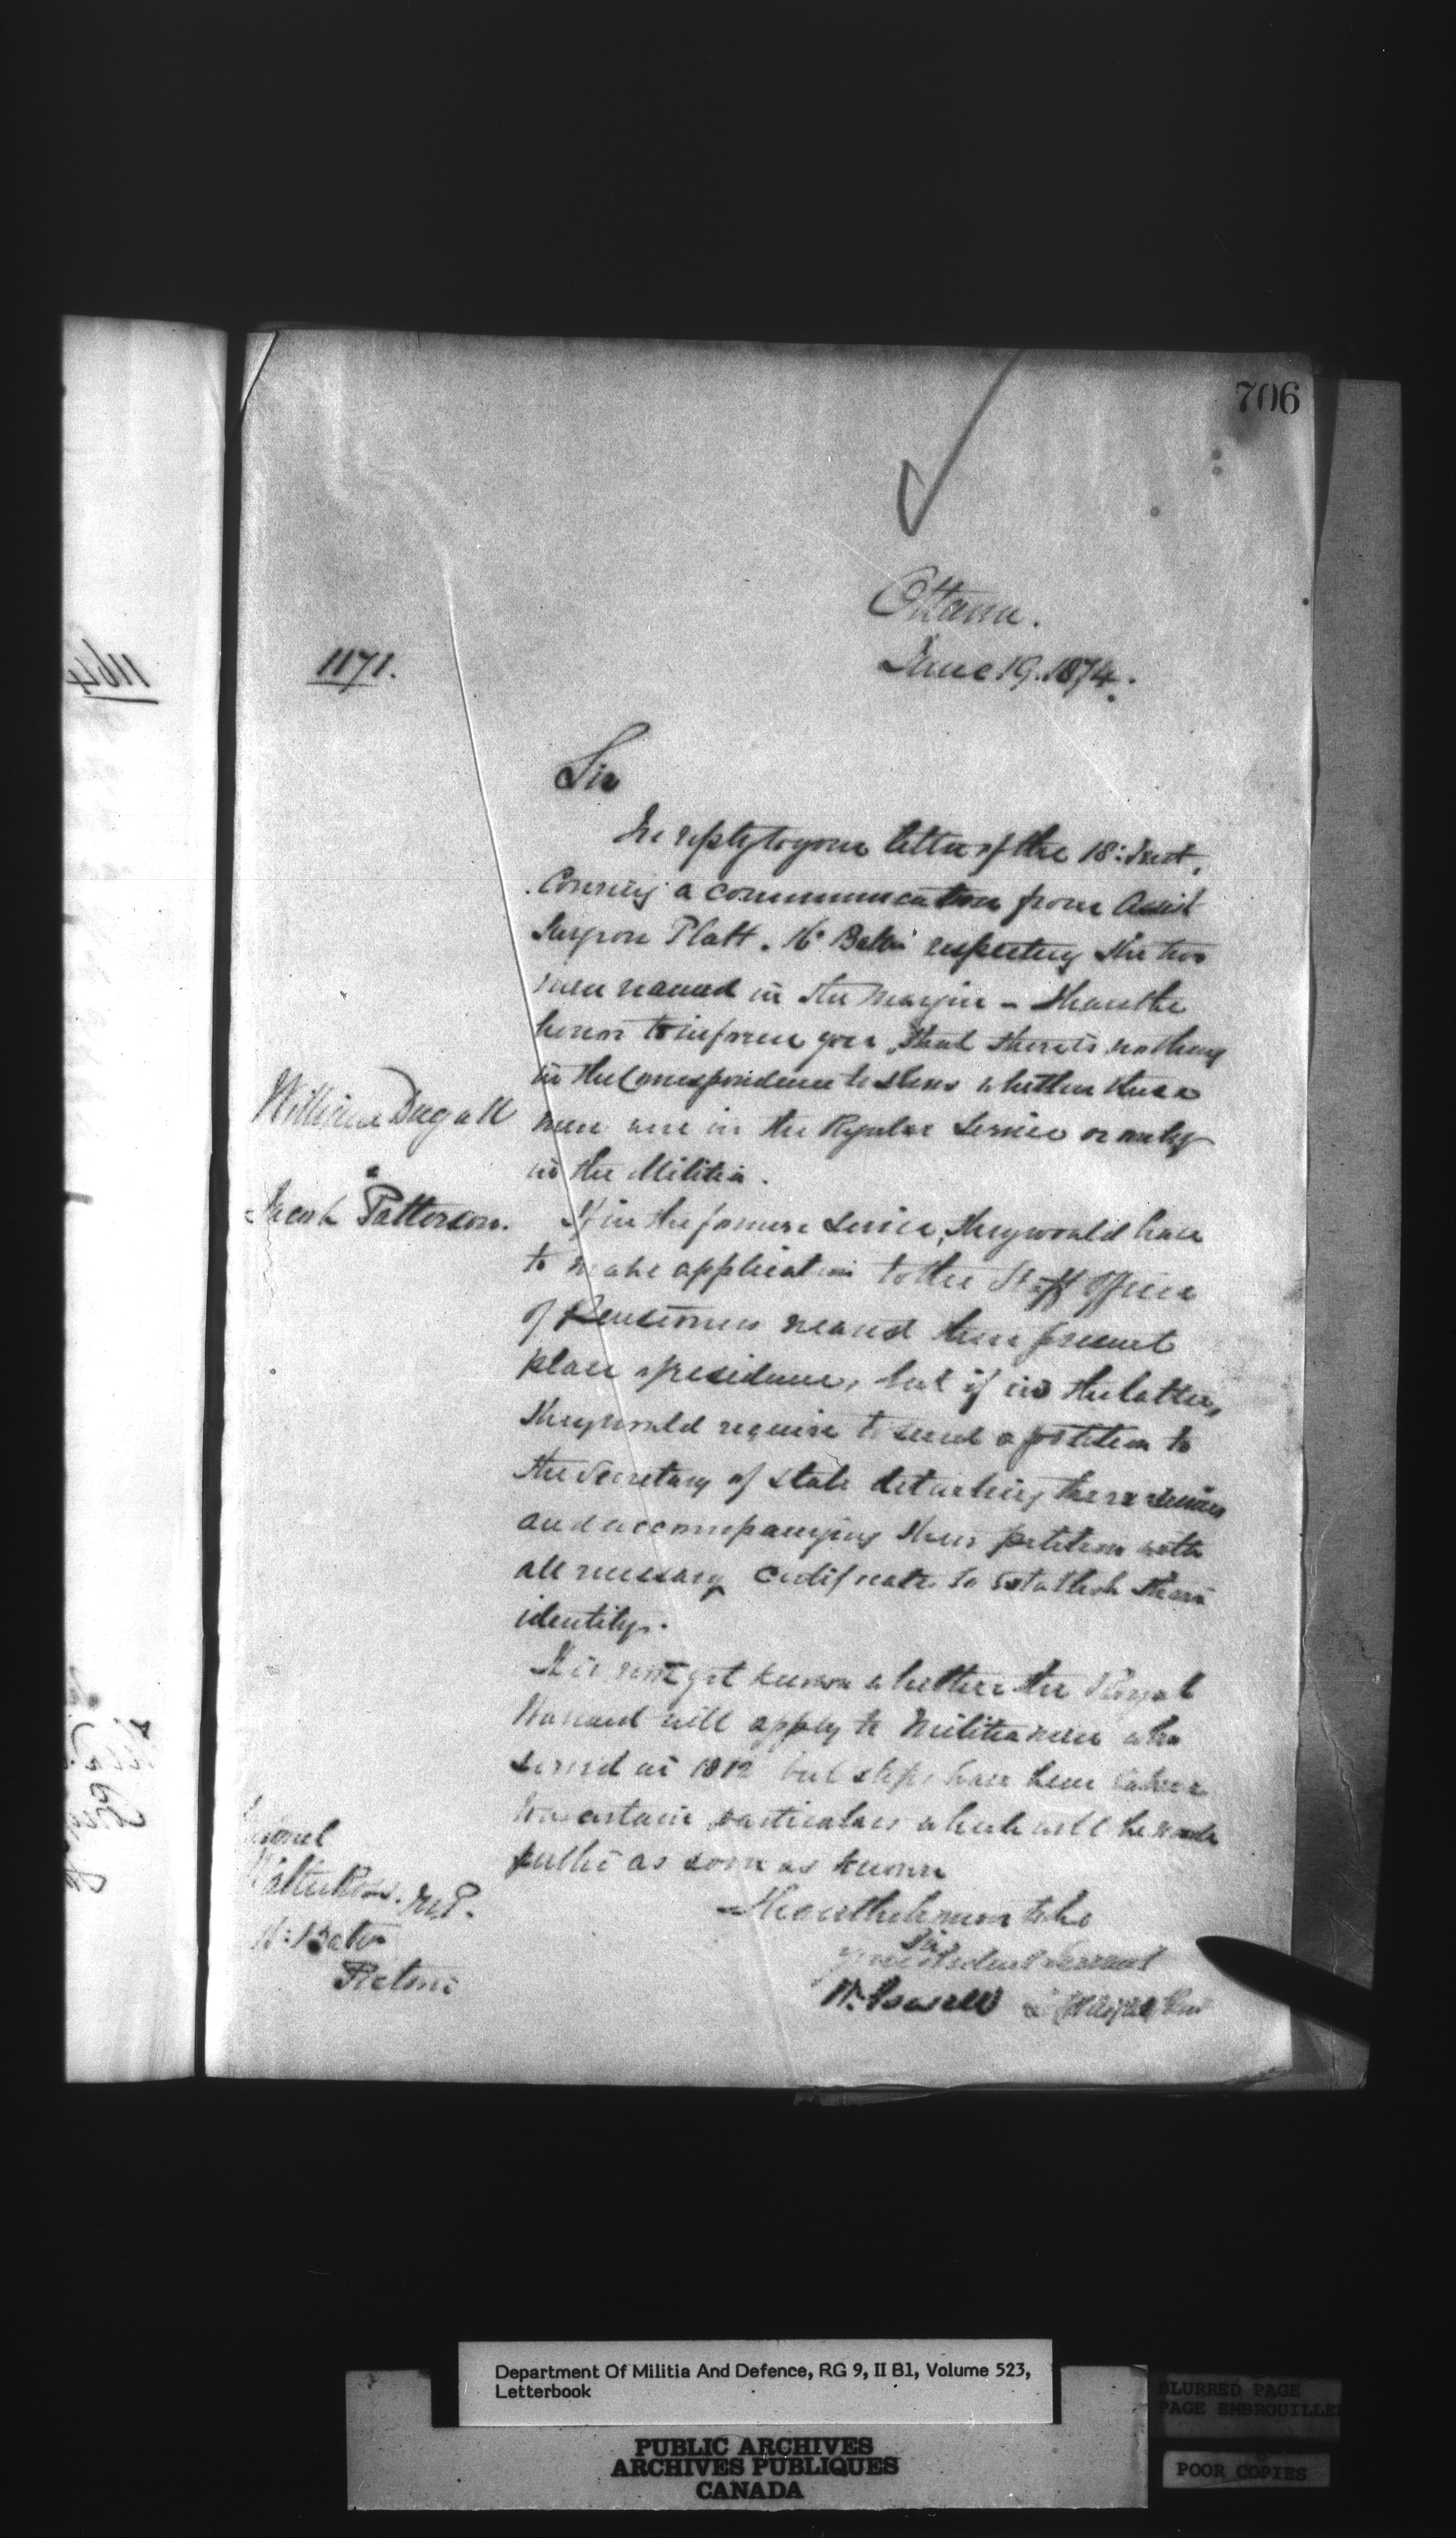 706
Ottawa.
June 19. 1874.
1171.
1164
Sir
In reply to your letter of the 18: Inst,
Covering a communication from Assist
Surgeon Platt. 16th Battn respecting the two
men named in the margin - I have the
honor to inform you, that there is nothing
in the Correspondence to show whether these
men were in the Regular Service or only
in the Militia.
William Dugall
&
Jacob Patterson.
If in the former service, they would have
to make application to the Staff Officer
of Pensioners nearest their present
place of residence, but if in the latter,
they would require to send a petition to
the Secretary of State detailing their services
and accompanying their petition with
all necessary certificates to establish their
identity.
It is not yet known whether the Royal
Warrant will apply to Militiamen who
served in 1812 but steps have been taken
to ascertain particulars which will be made
public as soon as known
I have the honor to be
Sir
Your obedient Servant
W. Powell
Colonel
Walter Ross. M.P.
16: Battn
Picton
Department Of Militia And Defence, RG 9, II B1, Volume 523,
Letterbook
PUBLIC ARCHIVES
ARCHIVES PUBLIQUES
CANADA
BLURRED PAGE
PAGE EMBROUILLEE
POOR COPIES